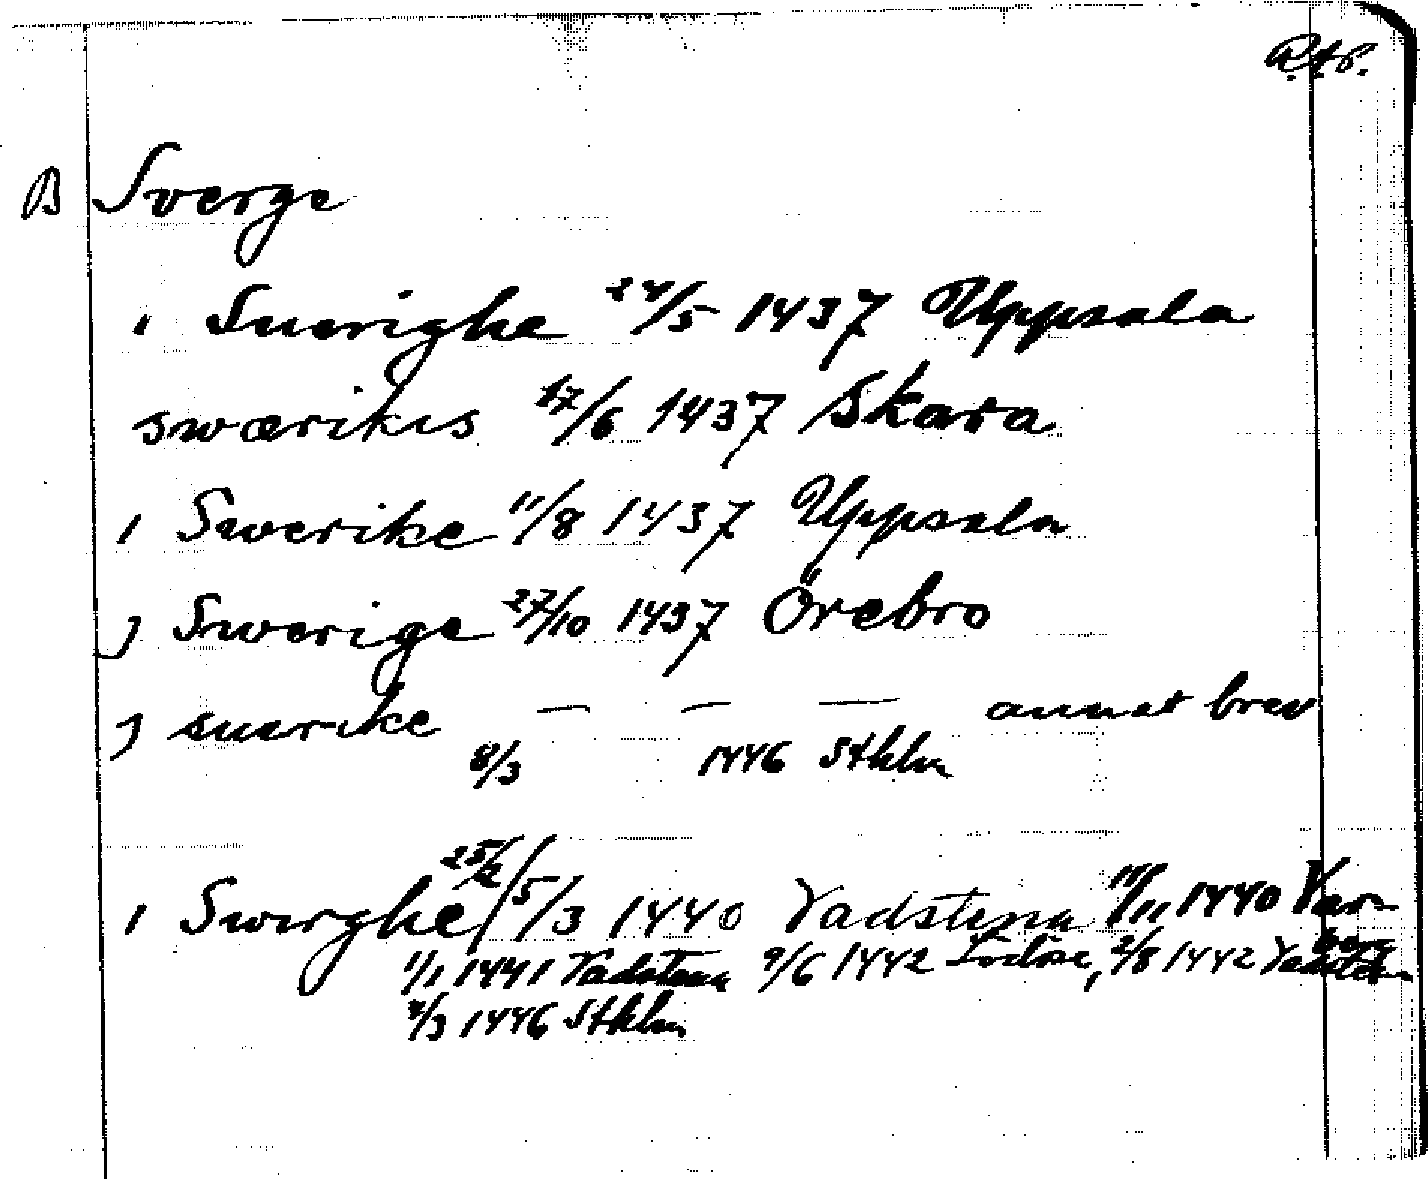 R.A.P.
B Sverge
i Suerighe 24/5 1437 Uppsala
swærikis 17/6 1437 Skara
i Swerike 11/8 1437 Uppsala
j Swerige 27/10 1437 Örebro
j suerike — — — annat brev
8/3 1446 Sthlm
i Swerghe 25/2 / 5/3 1440 Vadstena 11/11 1440 Var-
berg
1/1 1441 Vadstena 9/6 1442 Lödöse, 2/8 1442 Vadstena
8/3 1446 Sthlm